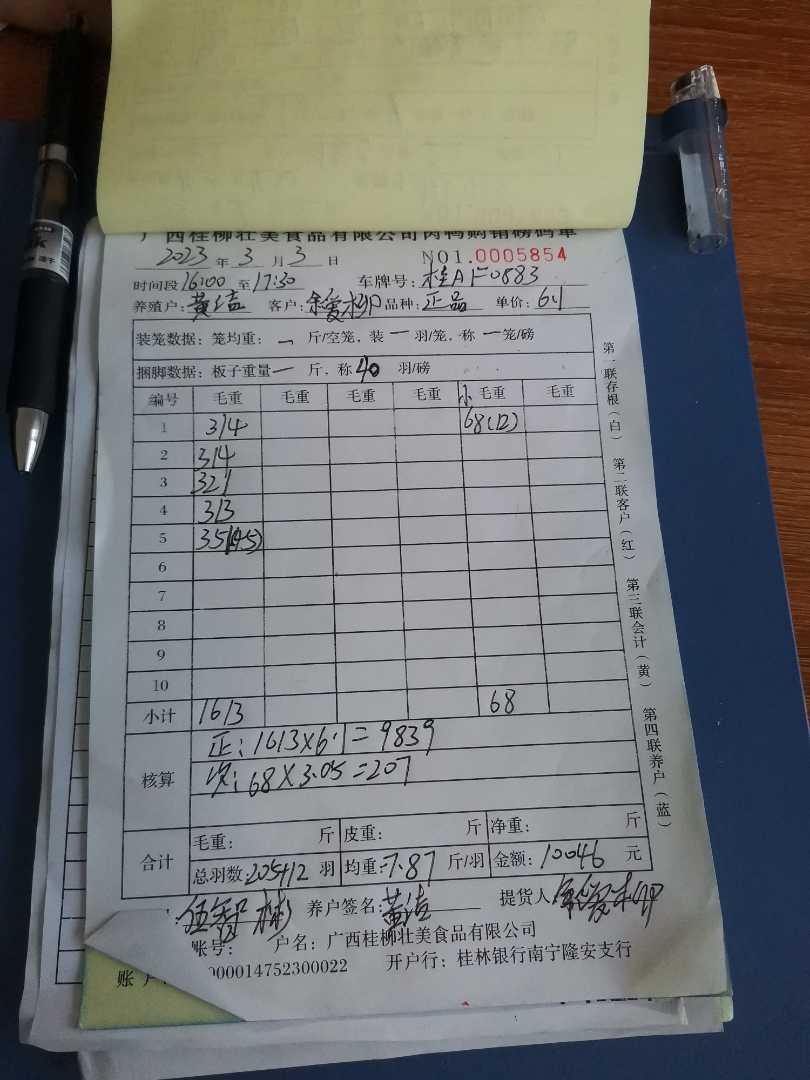 广西桂柳壮美食品有限公司肉鸭购销磅码单
2023 年 3 月 3 日 NO1.0005854
时间段 16:00 至 17:30 车牌号: 桂AF0883
养殖户: 黄洁 客户: 品种: 正品 单价: 6.1
装笼数据: 笼均重: 一 斤/空笼, 装 一 羽/笼, 称 一 笼/磅
捆脚数据: 板子重量 一 斤, 称 40 羽/磅
编号 毛重 毛重 毛重 毛重 小 毛重 毛重
1 314 68(12)
2 314
3 321
4 313
5 351(45)
6
7
8
9
10
小计 1613 68
正: 1613×6.1=9839
核算 次: 68×3.05=207
毛重: 斤 皮重: 斤 净重: 斤
合计 总羽数: 205+12 羽 均重: 7.87 斤/羽 金额: 10046 元
养户签名: 黄洁 提货人
账号: 户名: 广西桂柳壮美食品有限公司
账户 000014752300022 开户行: 桂林银行南宁隆安支行
第一联存根(白) 第二联客户(红) 第三联会计(黄) 第四联养户(蓝)